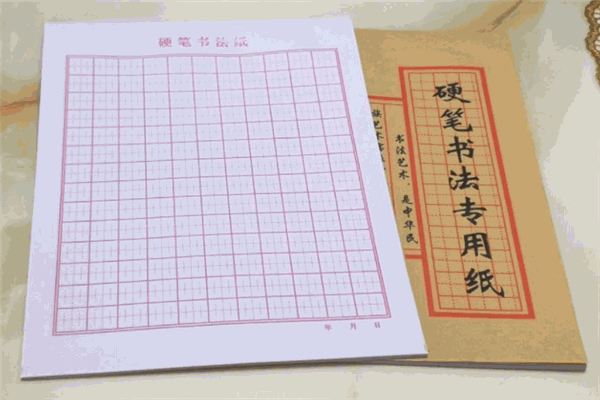 硬笔书法纸
年 月 日
硬笔书法专用纸
书法艺术，是中华民
族艺术